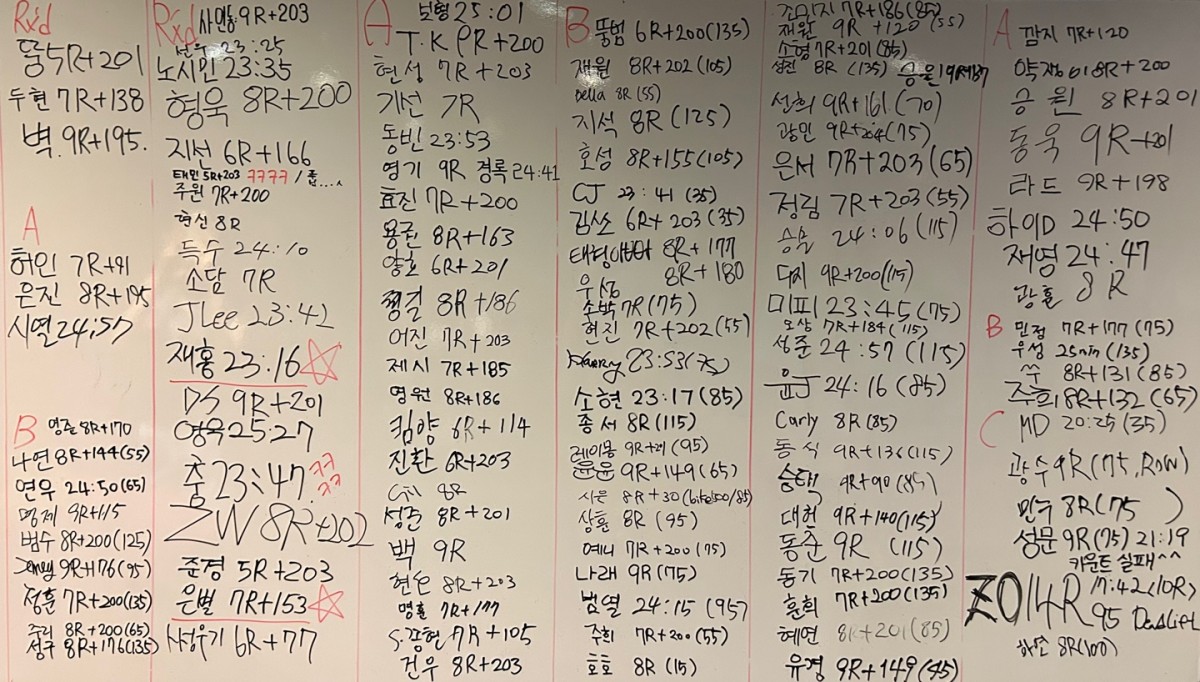 Rx'd
뚱식R+201
두현 7R+138
벽. 9R+195.
A
허인 7R+91
은진 8R+195
시열 24;57
B 영준 8R+170
나연 8R+144(55)
연우 24:50(65)
명제 9R+115
범수 8R+200(125)
Jenny 9R+176(95)
정훈 7R+200(135)
주리 8R+200(65)
성구 8R+176(135)
Rx'd 사인동 9R+203
선우 23:25
노시민 23:35
형욱 8R+200
지선 6R+166
태민 5R+203 ㅋㅋㅋㅋ /
주원 7R+200
혁신 8R
득수 24:10
소담 7R
JLee 23:42
재홍 23:16
DS 9R+201
영욱 25:27
충 23:47 ㅋㅋㅋㅋ
ZW 8R+202
준경 5R+203
은별 7R+153
사성우기 6R+77
A 보형 25:01
T.K 9R+200
현성 7R+203
기선 7R
동빈 23:53
영기 9R 경록 24:41
효진 7R+200
용준 8R+163
양호 6R+201
평길 8R+186
어진 7R+203
제시 7R+185
명원 8R+186
킴양 6R+114
진환 6R+203
8R
성준 8R+201
백 9R
현은 8R+203
명훈 7R+177
S.강현 7R+105
건우 8R+203
B 뚱범 6R+200(135)
재원 8R+202(105)
Bella 8R(55)
지석 8R(125)
호성 8R+155(105)
CJ 23:41(35)
김소 6R+203(35)
태형이빠따 8R+177
우성 8R+180
소박 7R(75)
현진 7R+202(55)
Harry 23:53(75)
소현 23:17(85)
종서 8R(115)
레이몽 9R+29(95)
윤윤 9R+149(65)
시은 8R+30(bike150/85)
상훈 8R(95)
예니 7R+200(75)
나래 9R(75)
범열 24:15(95)
주희 7R+200(55)
호호 8R(15)
조민지 7R+186(85)
재원 9R+120(55)
소형 7R+201(85)
성진 8R(135) 승을 19R+137
선희 9R+161(70)
광민 9R+204(75)
은서 7R+203(65)
정림 7R+203(55)
승분 24:06(115)
더지 9R+200(115)
미피 23:45(75)
오상 7R+184(115)
성준 24:57(115)
윤J 24:16(85)
Curly 8R(85)
동식 9R+136(115)
승택 9R+90(85)
대현 9R+140(115)
동준 9R (115)
동기 7R+200(135)
훈희 7R+200(135)
혜연 8R+201(85)
유경 9R+149(45)
A 깜지 7R+120
약쟁이 8R+200
승원 8R+201
동욱 9R+201
라드 9R+198
하이D 24:50
재영 24:47
광훈 8R
B 민정 7R+177(75)
우성 25min(135)
쑤 8R+131(85)
주희 8R+132(65)
C MD 20:25(35)
광수 9R(75,ROW)
민수 8R(75 )
성문 9R(75) 21:19
카운트 실패^^
ZO14R 17:42(10R)
95 Deadlift
하은 8R(100)